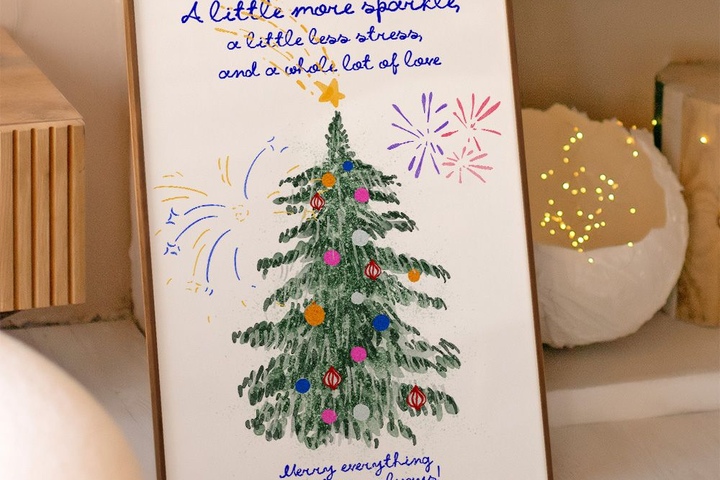 A little more sparkle,
a little less stress,
and a whole lot of love
Merry everything